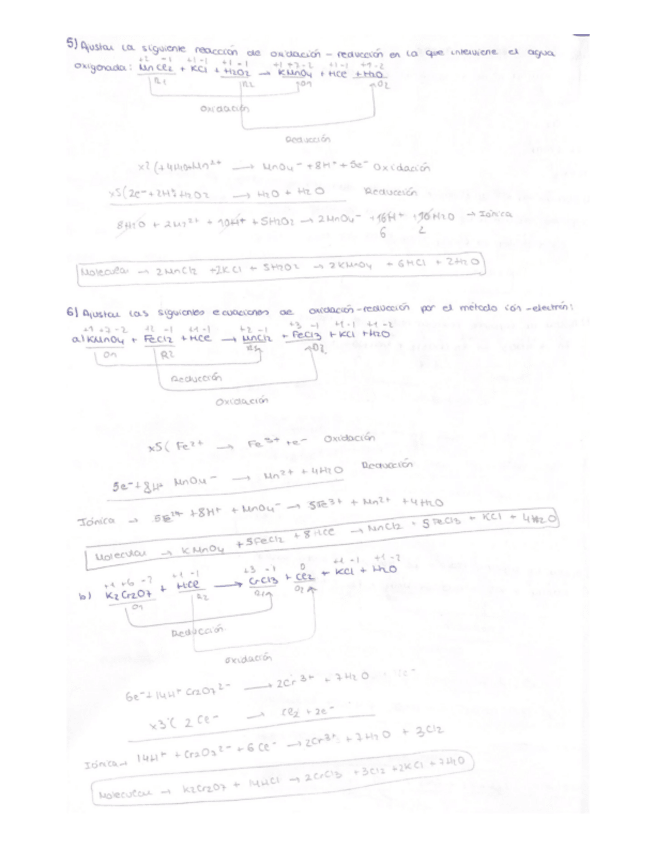 5) Ajustar la siguiente reacción de oxidación - reducción en la que interviene el agua
+2 -1 +1 -1 +1 -1 +1 +7 -2 +1 -1 +1 -2
oxigenada: MnCl2 + KCl + H2O2 → KMnO4 + HCl + H2O
R1 R2 O1 O2
Oxidación
Reducción
x2 (+4H2O+Mn2+ → MnO4- + 8H+ + 5e- Oxidación
x5(2e- + 2H+ + H2O2 → H2O + H2O Reducción
8H2O + 2Mn2+ + 10H+ + 5H2O2 → 2MnO4- + 16H+ + 10H2O → Iónica
6 2
Molecular → 2MnCl2 + 2KCl + 5H2O2 → 2KMnO4 + 6HCl + 2H2O
6) Ajustar las siguientes ecuaciones de oxidación-reducción por el método ión-electrón:
+1 +7 -2 +2 -1 +1 -1 +2 -1 +3 -1 +1 -1 +1 -2
a) KMnO4 + FeCl2 + HCl → MnCl2 + FeCl3 + KCl + H2O
O1 R2 O2
Reducción
Oxidación
x5( Fe2+ → Fe3+ + e- Oxidación
5e- + 8H+ MnO4- → Mn2+ + 4H2O Reducción
Iónica → 5Fe2+ + 8H+ + MnO4- → 5Fe3+ + Mn2+ + 4H2O
Molecular → KMnO4 + 5FeCl2 + 8HCl → MnCl2 + 5FeCl3 + KCl + 4H2O
+1 +6 -2 +1 -1 +3 -1 0 +1 -1 +1 -2
b) K2Cr2O7 + HCl → CrCl3 + Cl2 + KCl + H2O
O1 R2 O2
Reducción
Oxidación
6e- + 14H+ Cr2O7 2- → 2Cr3+ + 7H2O
x3( 2Cl- → Cl2 + 2e-
Iónica → 14H+ + Cr2O7 2- + 6Cl- → 2Cr3+ + 7H2O + 3Cl2
Molecular → K2Cr2O7 + 14HCl → 2CrCl3 + 3Cl2 + 2KCl + 7H2O